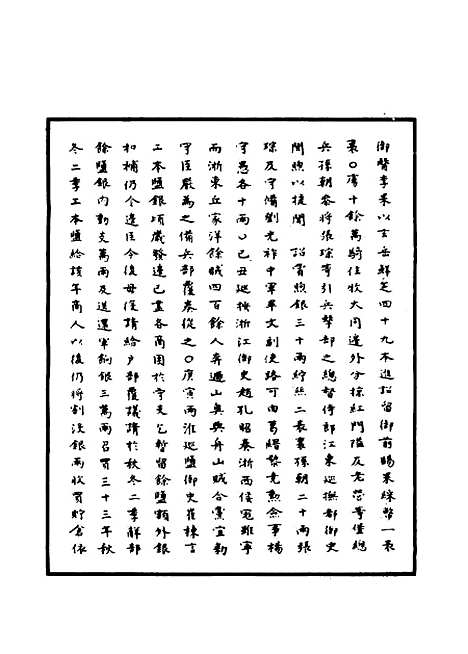 御醫李杲以言岳鮮芝四十九本進詔留御前賜杲綵幣一表
裏○虜十餘萬騎住牧大同邊外分掠紅門隘及老營等堡總
兵孫朝參將張琮等引兵擊却之總督侍郎江東巡撫都御史
閔煦以捷聞　詔賞煦銀三十兩紵絲二表裏孫朝二十兩張
琮及守備劉光祚中軍畢文副使路可由葛縉檠克勲僉事楊
守愚各十兩○己丑巡按浙江御史趙孔昭奏浙西倭寇雖寧
而浙東丘家洋餘賊四百餘人奔遁山奥與舟山賊合黨宜勅
守臣嚴為之備兵部覆奏從之○庚寅兩淮巡鹽御史崔棟言
工本鹽銀頃歲發邊已盡各商困於守支乞暫留餘鹽額外銀
扣補仍令邊臣今後毋從請給户部覆議請於秋冬二季解部
餘鹽銀内動支萬兩及送還軍餉銀三萬兩召買三十三年秋
冬二季工本鹽給該年商人以後仍將割没銀兩收買貯倉依